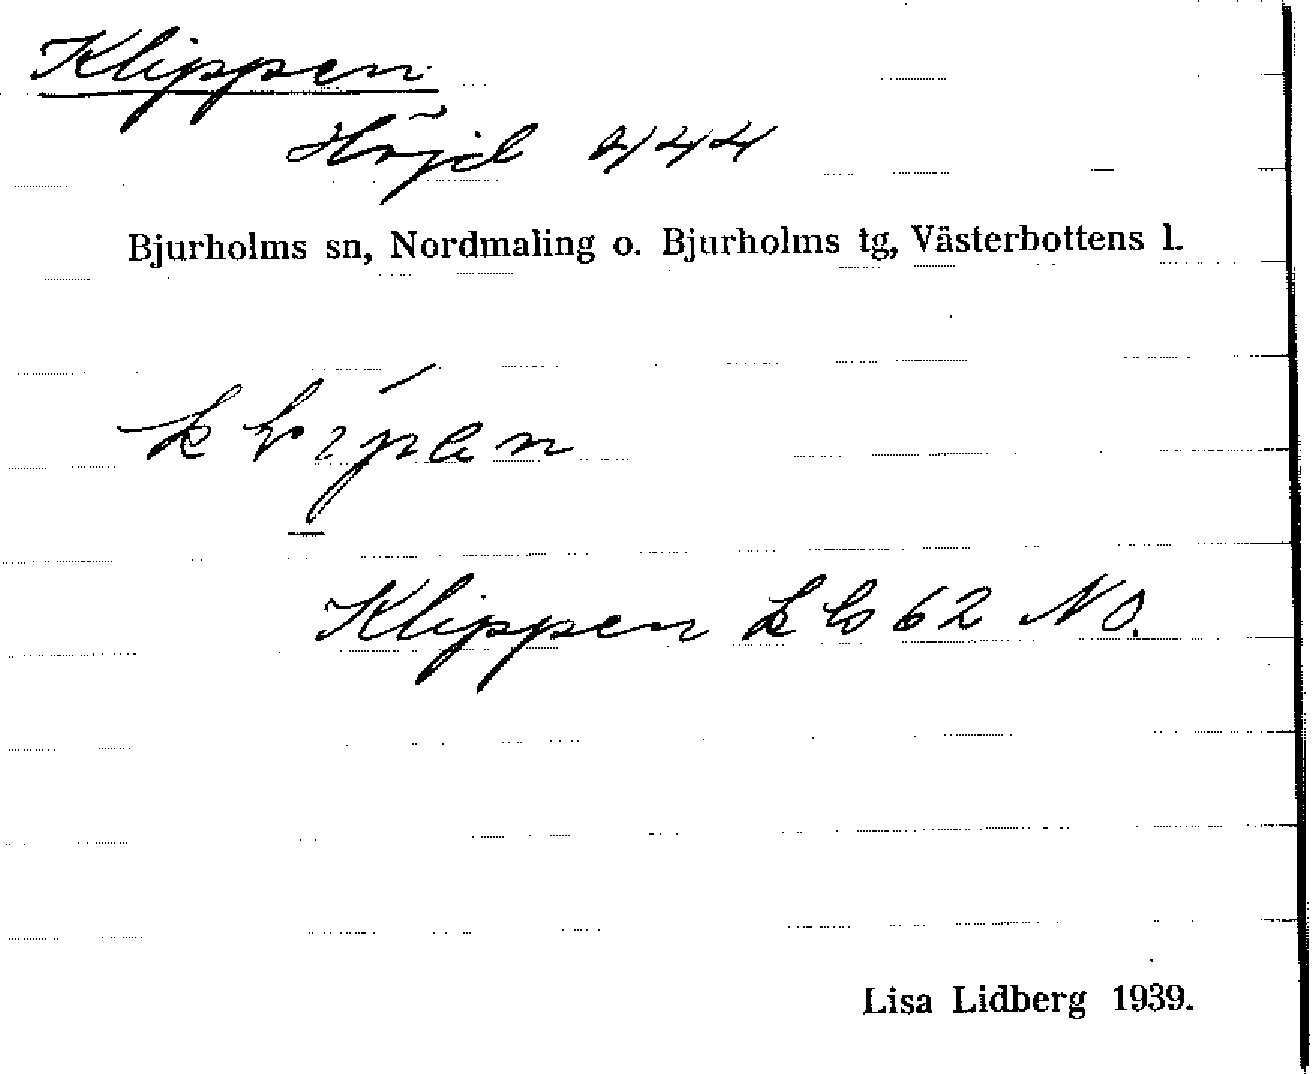 Klippen
Höjd 444
Bjurholms sn, Nordmaling o. Bjurholms tg, Västerbottens l.
Klippen kb 62 NO.
Lisa Lidberg 1939.